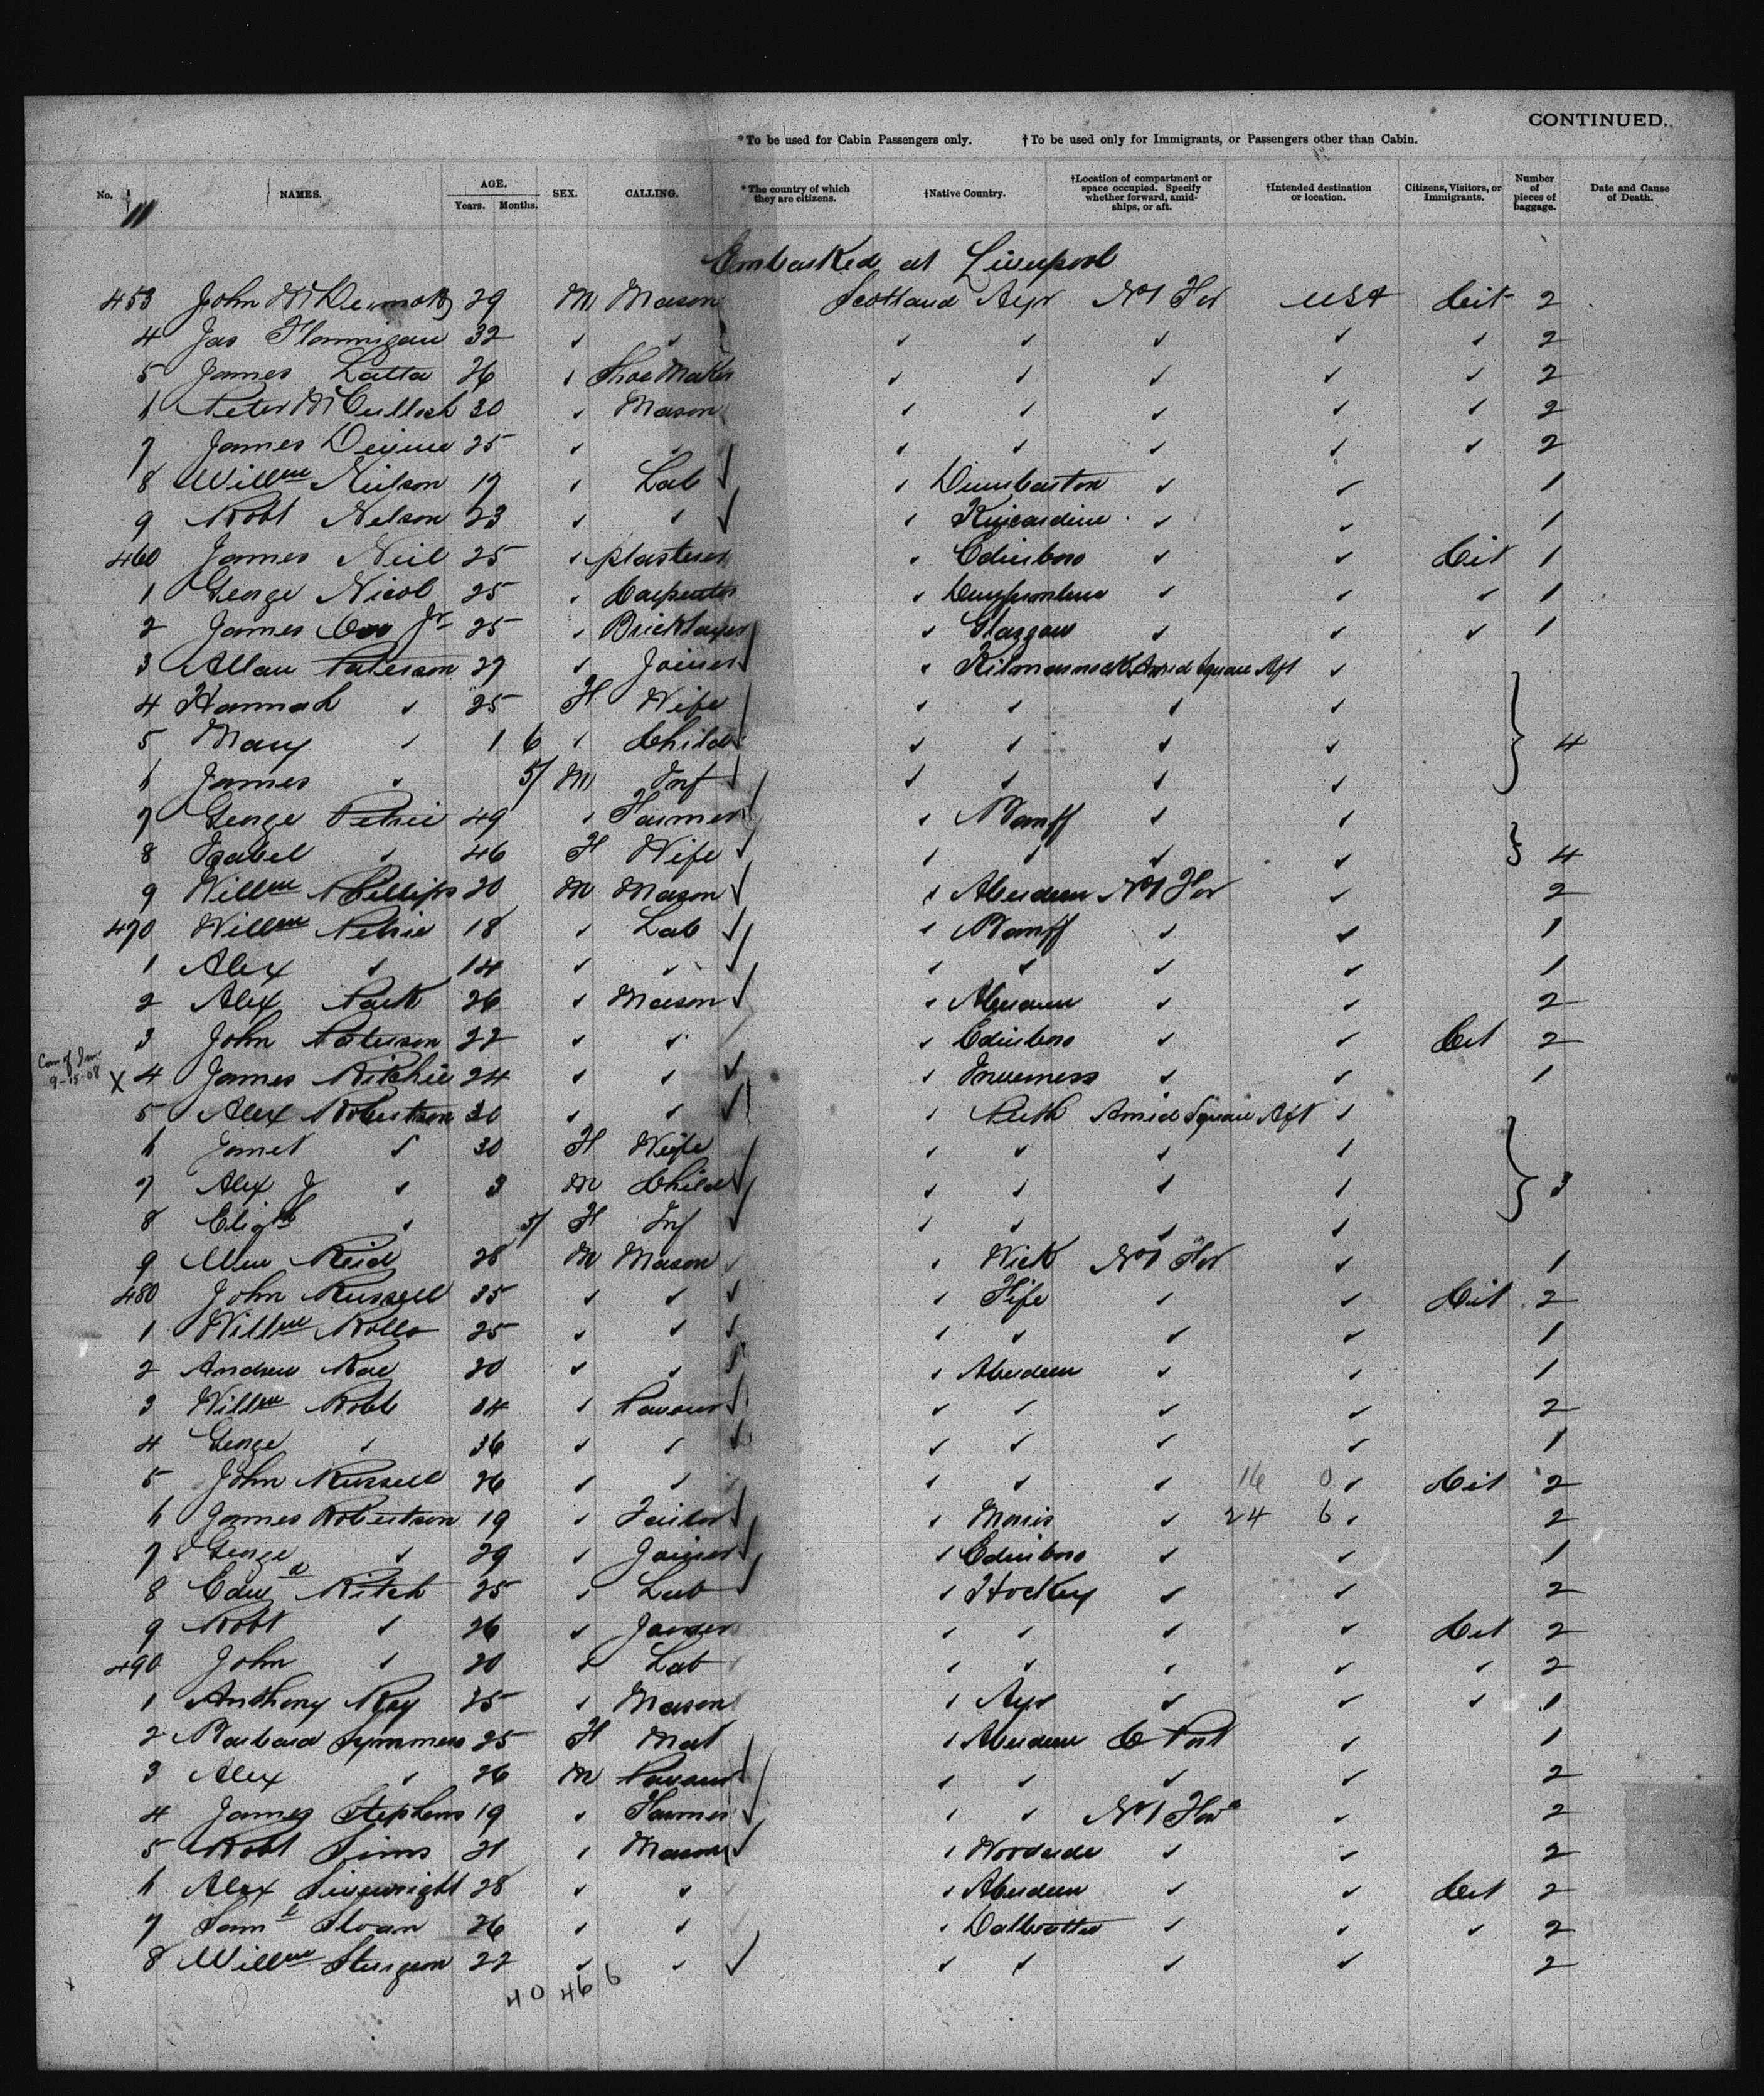 CONTINUED.
*To be used for Cabin Passengers only. †To be used only for Immigrants, or Passengers other than Cabin.
No. NAMES. AGE. Years. Months. SEX. CALLING. *The country of which they are citizens. †Native Country. †Location of compartment or space occupied. Specify whether forward, amidships, or aft. †Intended destination or location. Citizens, Visitors, or Immigrants. Number of pieces of baggage. Date and Cause of Death.
11
Embarked at Liverpool
453 John McDermott 29 M Mason Scotland Ayr No1 For USA Cit 2
4 Jas Flannigan 32 ✓ ✓ ✓ ✓ ✓ ✓ ✓ 2
5 James Latta 26 ✓ Shoe Maker ✓ ✓ ✓ ✓ ✓ 2
6 Peter McCulloch 30 ✓ Mason ✓ ✓ ✓ ✓ ✓ 2
7 James 25 ✓ ✓ ✓ ✓ ✓ ✓ ✓ 2
8 Willm Neilson 17 ✓ Lab ✓ Dumbarton ✓ ✓ 1
9 Robt Nelson 23 ✓ ✓ ✓ Kincardine ✓ ✓ 1
460 James Neil 25 ✓ plasterer ✓ Edinboro ✓ ✓ Cit 1
1 George Nicol 25 ✓ Carpenter ✓ ✓ ✓ ✓ 1
2 James Orr Jr 25 ✓ Bricklayer ✓ Glasgow ✓ ✓ ✓ 1
3 Allan Paterson 27 ✓ Joiner ✓ Kilmarnock Amid Square Aft ✓
4 Hannah ✓ 25 F Wife ✓ ✓ ✓ ✓
5 Mary ✓ 1 6 ✓ Child ✓ ✓ ✓ ✓ 4
6 James ✓ 5/ M Inf ✓ ✓ ✓ ✓
7 George Petrie 49 ✓ Farmer ✓ Banff ✓ ✓
8 Isabel ✓ 46 F Wife ✓ ✓ ✓ ✓ 4
9 Willm Phillips 20 M Mason ✓ Aberdeen No1 For ✓ 2
470 Willm Petrie 18 ✓ Lab ✓ Banff ✓ ✓ 1
1 Alex ✓ 14 ✓ ✓ ✓ ✓ ✓ ✓ 1
2 Alex Park 26 ✓ Mason ✓ Aberdeen ✓ ✓ 2
3 John Paterson 22 ✓ ✓ ✓ Edinboro ✓ ✓ Cit 2
Com of Im
9-15-08
X 4 James Ritchie 24 ✓ ✓ ✓ Inverness ✓ ✓ 1
5 Alex Robertson 30 ✓ ✓ ✓ Perth Amid Square Aft ✓
6 Janet ✓ 30 F Wife ✓ ✓ ✓ ✓
7 Alex J ✓ 3 M Child ✓ ✓ ✓ ✓ 3
8 Elizth ✓ 5/ F Inf ✓ ✓ ✓ ✓
9 Reid 28 M Mason ✓ Wick No1 For ✓ 1
480 John Russell 35 ✓ ✓ ✓ Fife ✓ ✓ Cit 2
1 Willm Rollo 25 ✓ ✓ ✓ ✓ ✓ ✓ 1
2 Andrew Rae 20 ✓ ✓ ✓ Aberdeen ✓ ✓ 1
3 Willm Robb 34 ✓ Paviour ✓ ✓ ✓ ✓ 2
4 George ✓ 36 ✓ ✓ ✓ ✓ ✓ ✓ 1
5 John Russell 26 ✓ ✓ ✓ ✓ ✓ 16 0 ✓ Cit 2
6 James Robertson 19 ✓ Tailor ✓ ✓ 24 6 ✓ 2
7 George ✓ 29 ✓ Joiner ✓ Edinboro ✓ ✓ 1
8 Edwd Ritch 25 ✓ Lab ✓ ✓ ✓ 2
9 Robt ✓ 26 ✓ Joiner ✓ ✓ ✓ ✓ Cit 2
490 John ✓ 20 ✓ Lab ✓ ✓ ✓ ✓ ✓ 2
1 Anthony Ray 25 ✓ Mason ✓ Ayr ✓ ✓ ✓ 1
2 Barbara Symmers 25 F Mat ✓ Aberdeen C Port ✓ 1
3 Alex ✓ 26 M Paviour ✓ ✓ ✓ ✓ 2
4 James Stephens 19 ✓ Farmer ✓ ✓ No1 For ✓ 2
5 Robt Sims 21 ✓ Mason ✓ Woodside ✓ ✓ 2
6 Alex Sivewright 28 ✓ ✓ ✓ Aberdeen ✓ ✓ Cit 2
7 Saml Sloan 26 ✓ ✓ ✓ Dalbeattie ✓ ✓ ✓ 2
8 Willm Sturgeon 22 ✓ ✓ ✓ ✓ ✓ ✓ 2
40 46 6